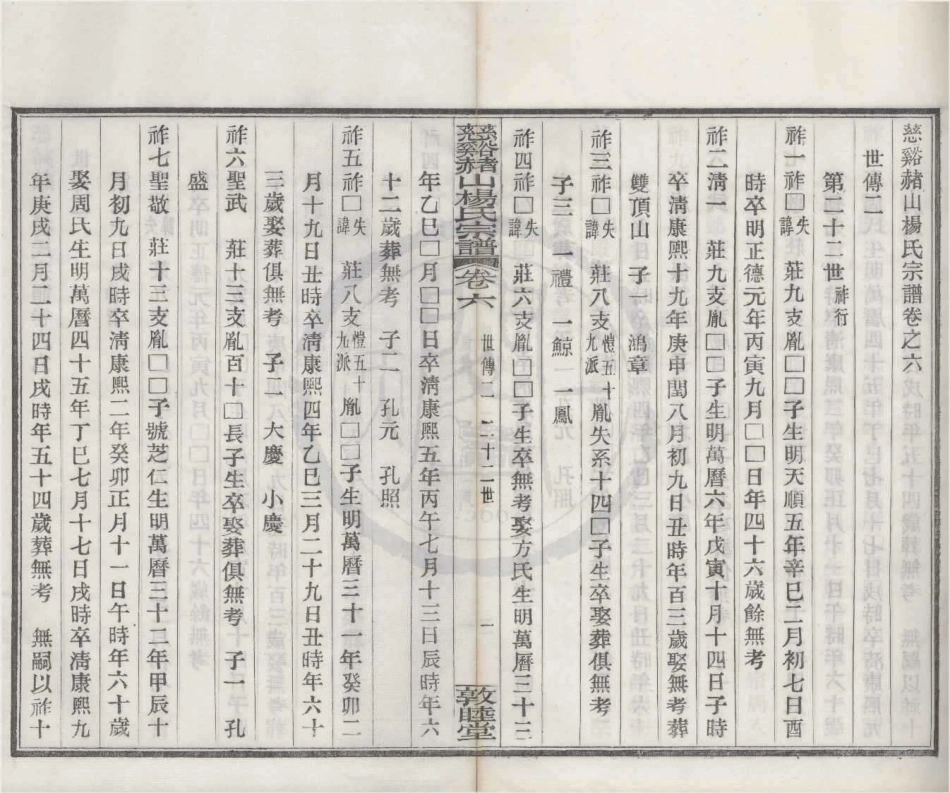 慈谿赭山楊氏宗譜卷之六
世傳二
第二十二世 祚行
祚一祚□失諱 莊九支胤□□子生明天順五年辛巳二月初七日酉
時卒明正德元年丙寅九月□□日年四十六歲餘無考
祚二淸一 莊九支胤□□子生明萬曆六年戊寅十月十四日子時
卒淸康熙十九年庚申閏八月初九日丑時年百三歲娶無考葬
雙頂山 子一 鴻章
祚三祚□失諱 莊八支愷五十九派胤失系十四□子生卒娶葬俱無考
子三 一禮 一鯨 一鳳
祚四祚□失諱 莊六支胤□□子生卒無考娶方氏生明萬曆三十三
慈谿赭山楊氏宗譜 卷六 世傳二 二十二世 一 敦睦堂
年乙巳□月□□日卒淸康熙五年丙午七月十三日辰時年六
十二歲葬無考 子二 孔元 孔照
祚五祚□失諱 莊八支愷五十九派 胤□□子生明萬曆三十一年癸卯二
月十九日丑時卒淸康熙四年乙巳三月二十九日丑時年六十
三歲娶葬俱無考 子二 大慶 小慶
祚六聖武 莊十三支胤百十□長子生卒娶葬俱無考 子一 孔
盛
祚七聖敬 莊十三支胤□□子號芝仁生明萬曆三十二年甲辰十
月初九日戌時卒淸康熙二年癸卯正月十一日午時年六十歲
娶周氏生明萬曆四十五年丁巳七月十七日戌時卒淸康熙九
年庚戌二月二十四日戌時年五十四歲葬無考 無嗣以祚十